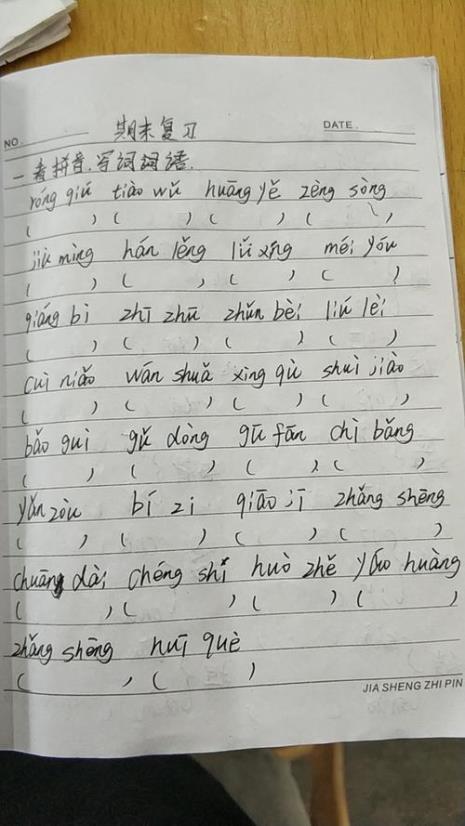 NO. 期末复习 DATE.
一看拼音，写词词语.
róng qiú tiào wǔ huāng yě zèng sòng
( ) ( ) ( ) ( )
jiù mìng hán lěng lǚ xíng méi yóu
( ) ( ) ( ) ( )
qiáng bì zhī zhū zhǔn bèi liú lèi
( ) ( ) ( ) ( )
cuì niǎo wán shuǎ xìng qù shuì jiào
( ) ( ) ( ) ( )
bǎo guì gǔ dòng gū fān chì bǎng
( ) ( ) ( ) ( )
yǎn zòu bí zi qiāo jī zhǎng shēng
( ) ( ) ( ) ( )
chuāng dài chéng shì huò zhě yáo huàng
( ) ( ) ( ) ( )
zhǎng shēng huī què
( ) ( )
JIA SHENG ZHI PIN